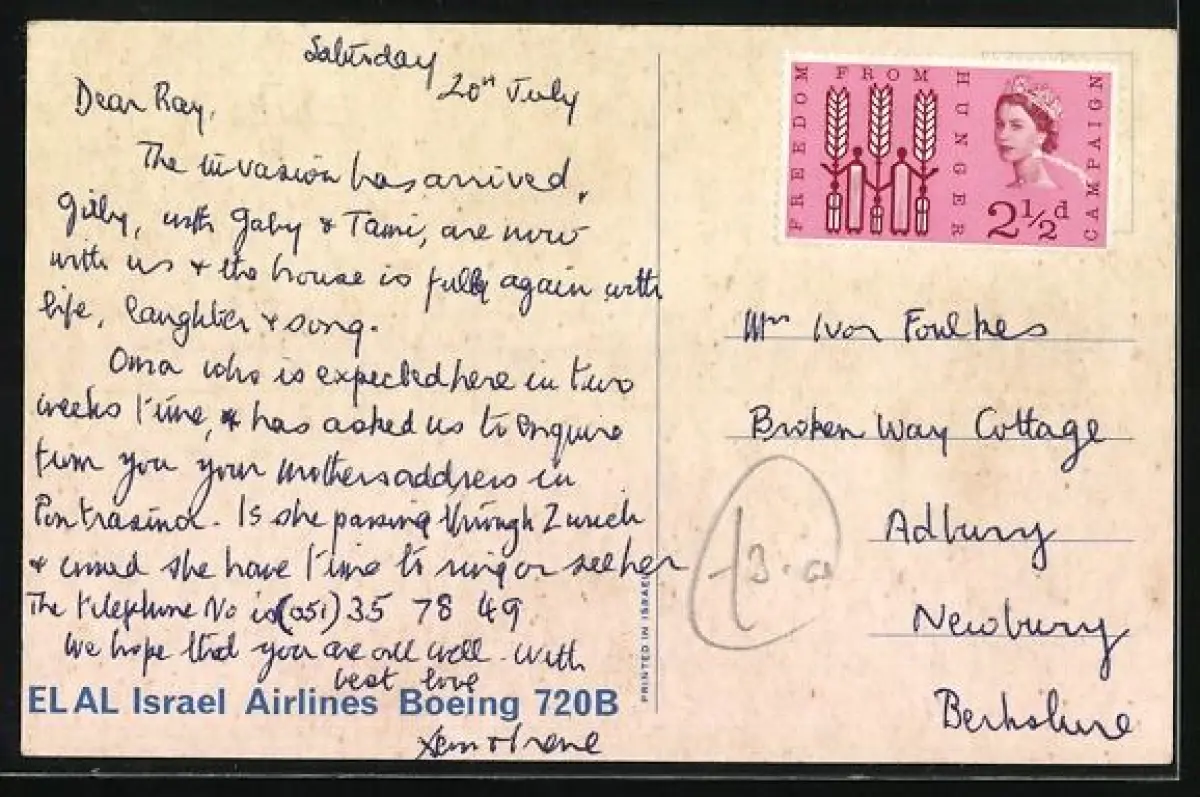 Saturday
20th July
Dear Ray,
The invasion has arrived,
Gilly, with Gaby & Tami, are now
with us & the house is fully again with
life, laughter & song.
Oma who is expected here in two
weeks time, & has asked us to enquire
from you your mothers address in
Pontrasina. Is she passing through Zurich
& would she have time to ring or see her
The telephone No is (051) 35 78 49
We hope that you are all well. With
best love
& Irene
EL AL Israel Airlines Boeing 720B
PRINTED IN ISRAEL
FREEDOM FROM HUNGER CAMPAIGN
2½d
Mrs Ivor Foulkes
Broken Way Cottage
Adbury
Newbury
Berkshire